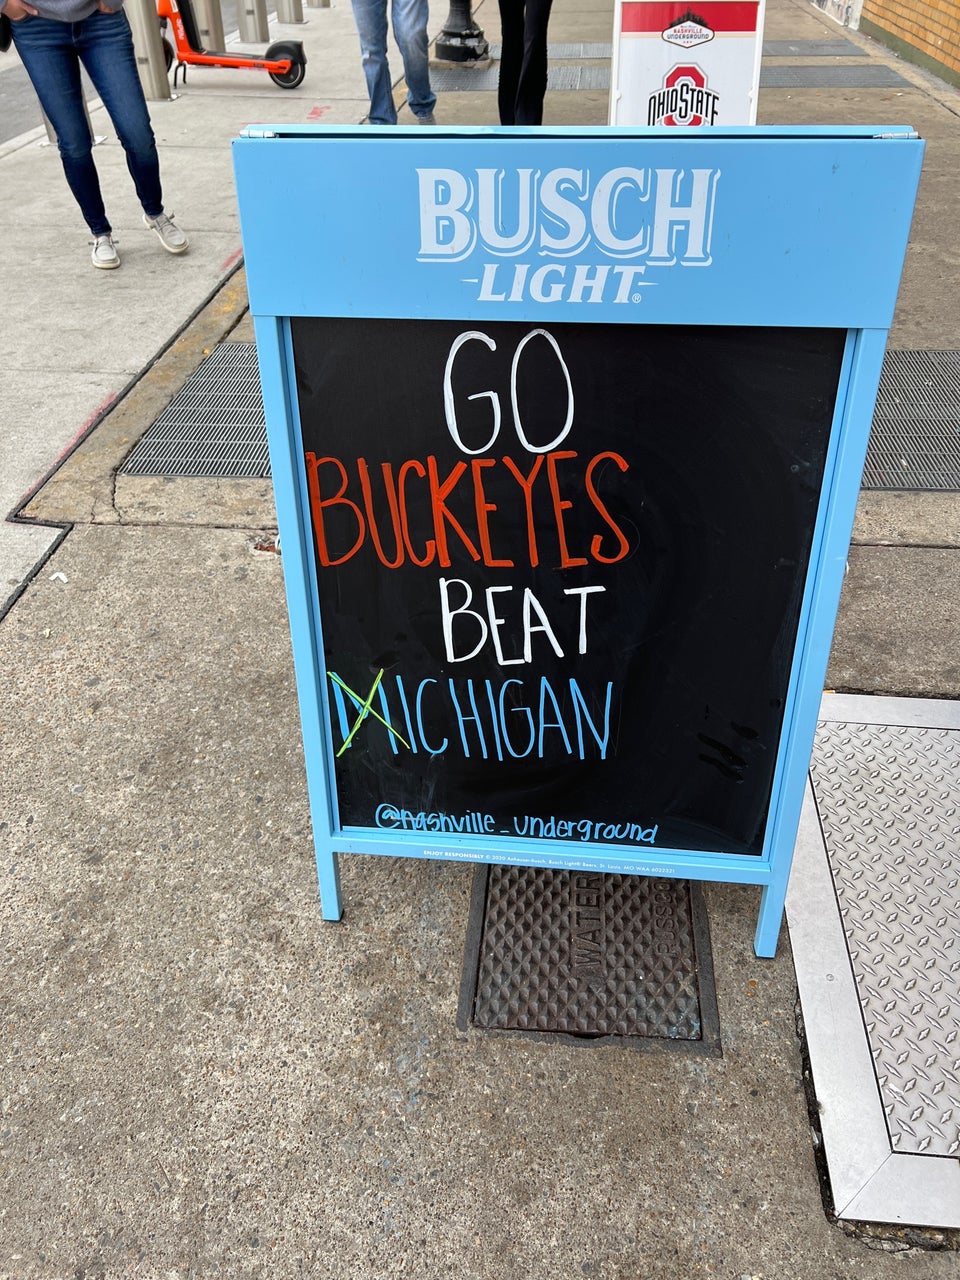 NASHVILLE
UNDERGROUND
OHIO STATE
BUSCH
LIGHT®
GO
BUCKEYES
BEAT
MICHIGAN
@nashville_underground
ENJOY RESPONSIBLY © 2020 Anheuser-Busch, Busch Light® Beers, St. Louis, MO
WATER